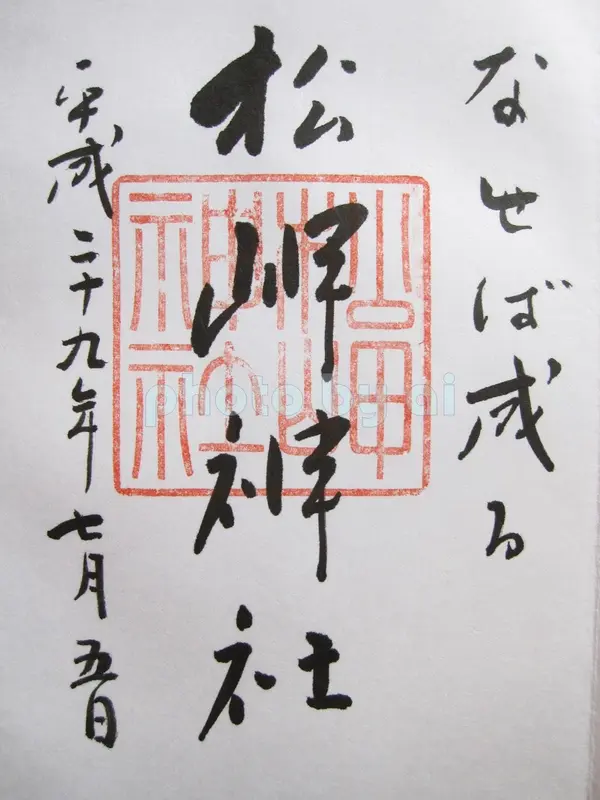 なせば成る
松岬神社
平成二十九年七月五日
松岬
神社
photo by ai